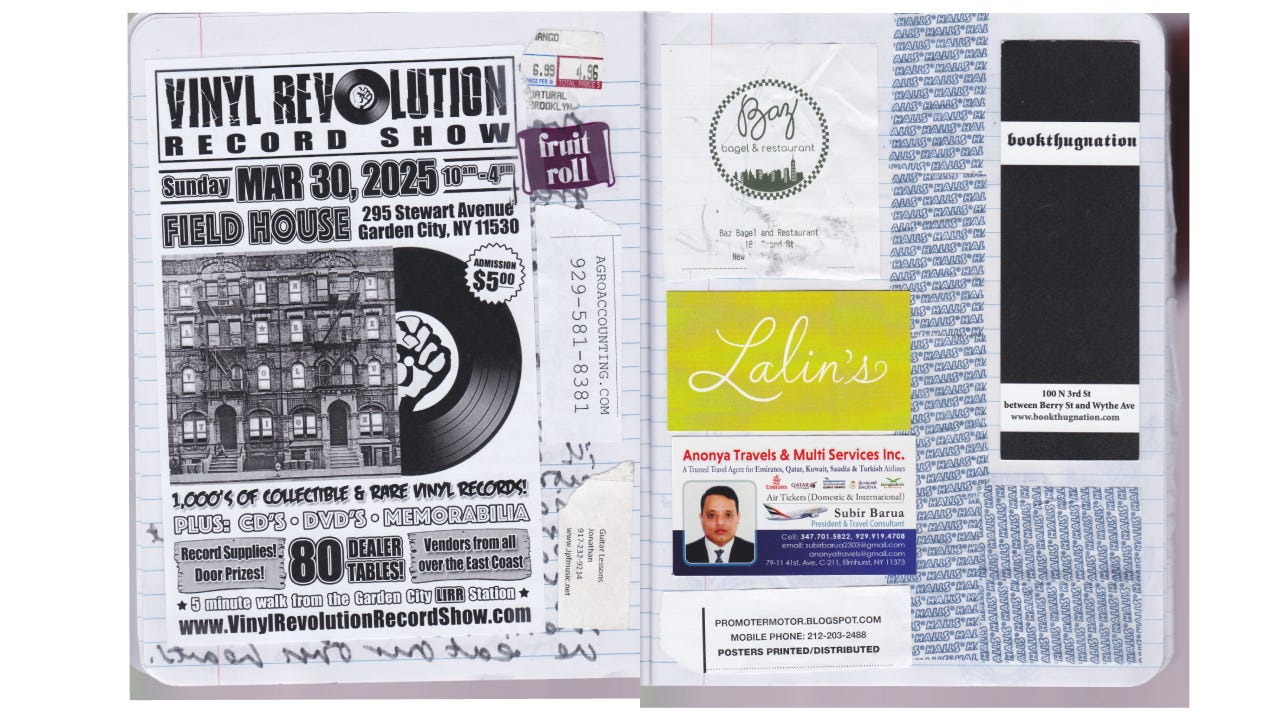 VINYL REVOLUTION
RECORD SHOW
Sunday MAR 30, 2025 10am-4pm
FIELD HOUSE
295 Stewart Avenue
Garden City, NY 11530
ADMISSION
$5.00
1,000'S OF COLLECTIBLE & RARE VINYL RECORDS!
PLUS: CD'S • DVD'S • MEMORABILIA
Record Supplies!
Door Prizes!
80 DEALER TABLES!
Vendors from all
over the East Coast
★ 5 minute walk from the Garden City LIRR Station ★
www.VinylRevolutionRecordShow.com
6.99 4.96
TOTAL PRICE $
NATURAL
BROOKLYN
fruit
roll
AGROACCOUNTING.COM
929-581-8381
Guitar Lessons
Jonathan
917-232-9214
www.jpfmusic.net
Baz
bagel & restaurant
Baz Bagel and Restaurant
Grand St
New
Lalin's
Anonya Travels & Multi Services Inc.
A Trusted Travel Agent for Emirates, Qatar, Kuwait, Saudia & Turkish Airlines
Emirates QATAR KUWAIT AIRWAYS SAUDIA
Air Tickets (Domestic & International)
Subir Barua
President & Travel Consultant
Cell: 347.701.5822, 929.919.4708
email: subirbarua2303@gmail.com
ananyatravels@gmail.com
79-11 41st. Ave. C-211, Elmhurst, NY 11373
PROMOTERMOTOR.BLOGSPOT.COM
MOBILE PHONE: 212-203-2488
POSTERS PRINTED/DISTRIBUTED
HALLS HALLS HALLS
bookthugnation
100 N 3rd St
between Berry St and Wythe Ave
www.bookthugnation.com